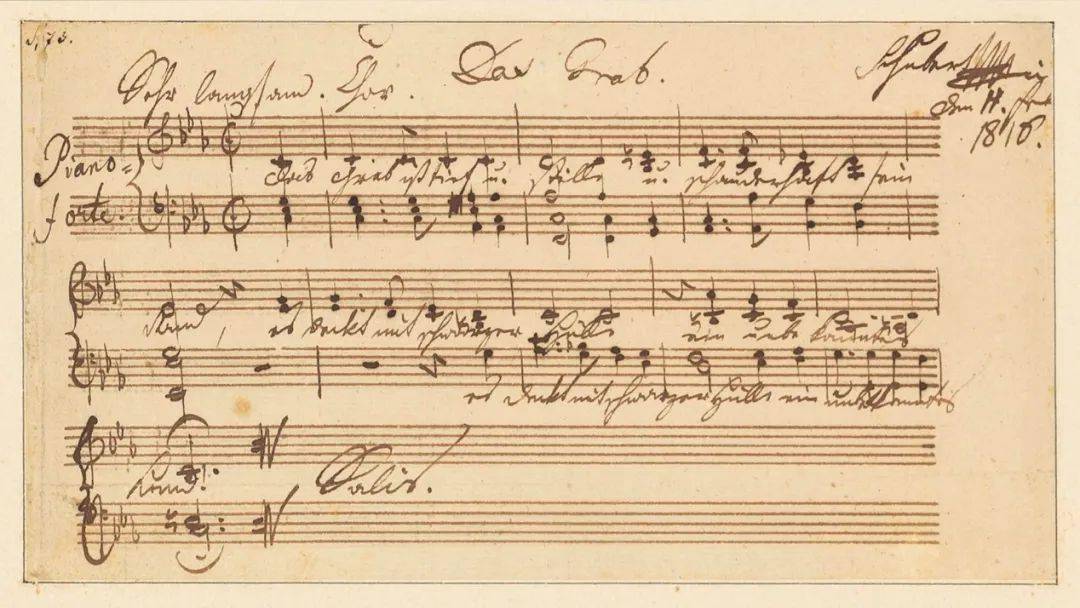 Das Grab.
Sehr langsam. Chor.
Schubert
den 11. Feb
1816.
Piano=
forte.
Das Grab ist tief u. stille u. schauderhaft sein
Rand, es deckt mit schwarzer Hülle ein unbekanntes
es deckt mit schwarzer Hülle ein unbekanntes
Land! Salis.